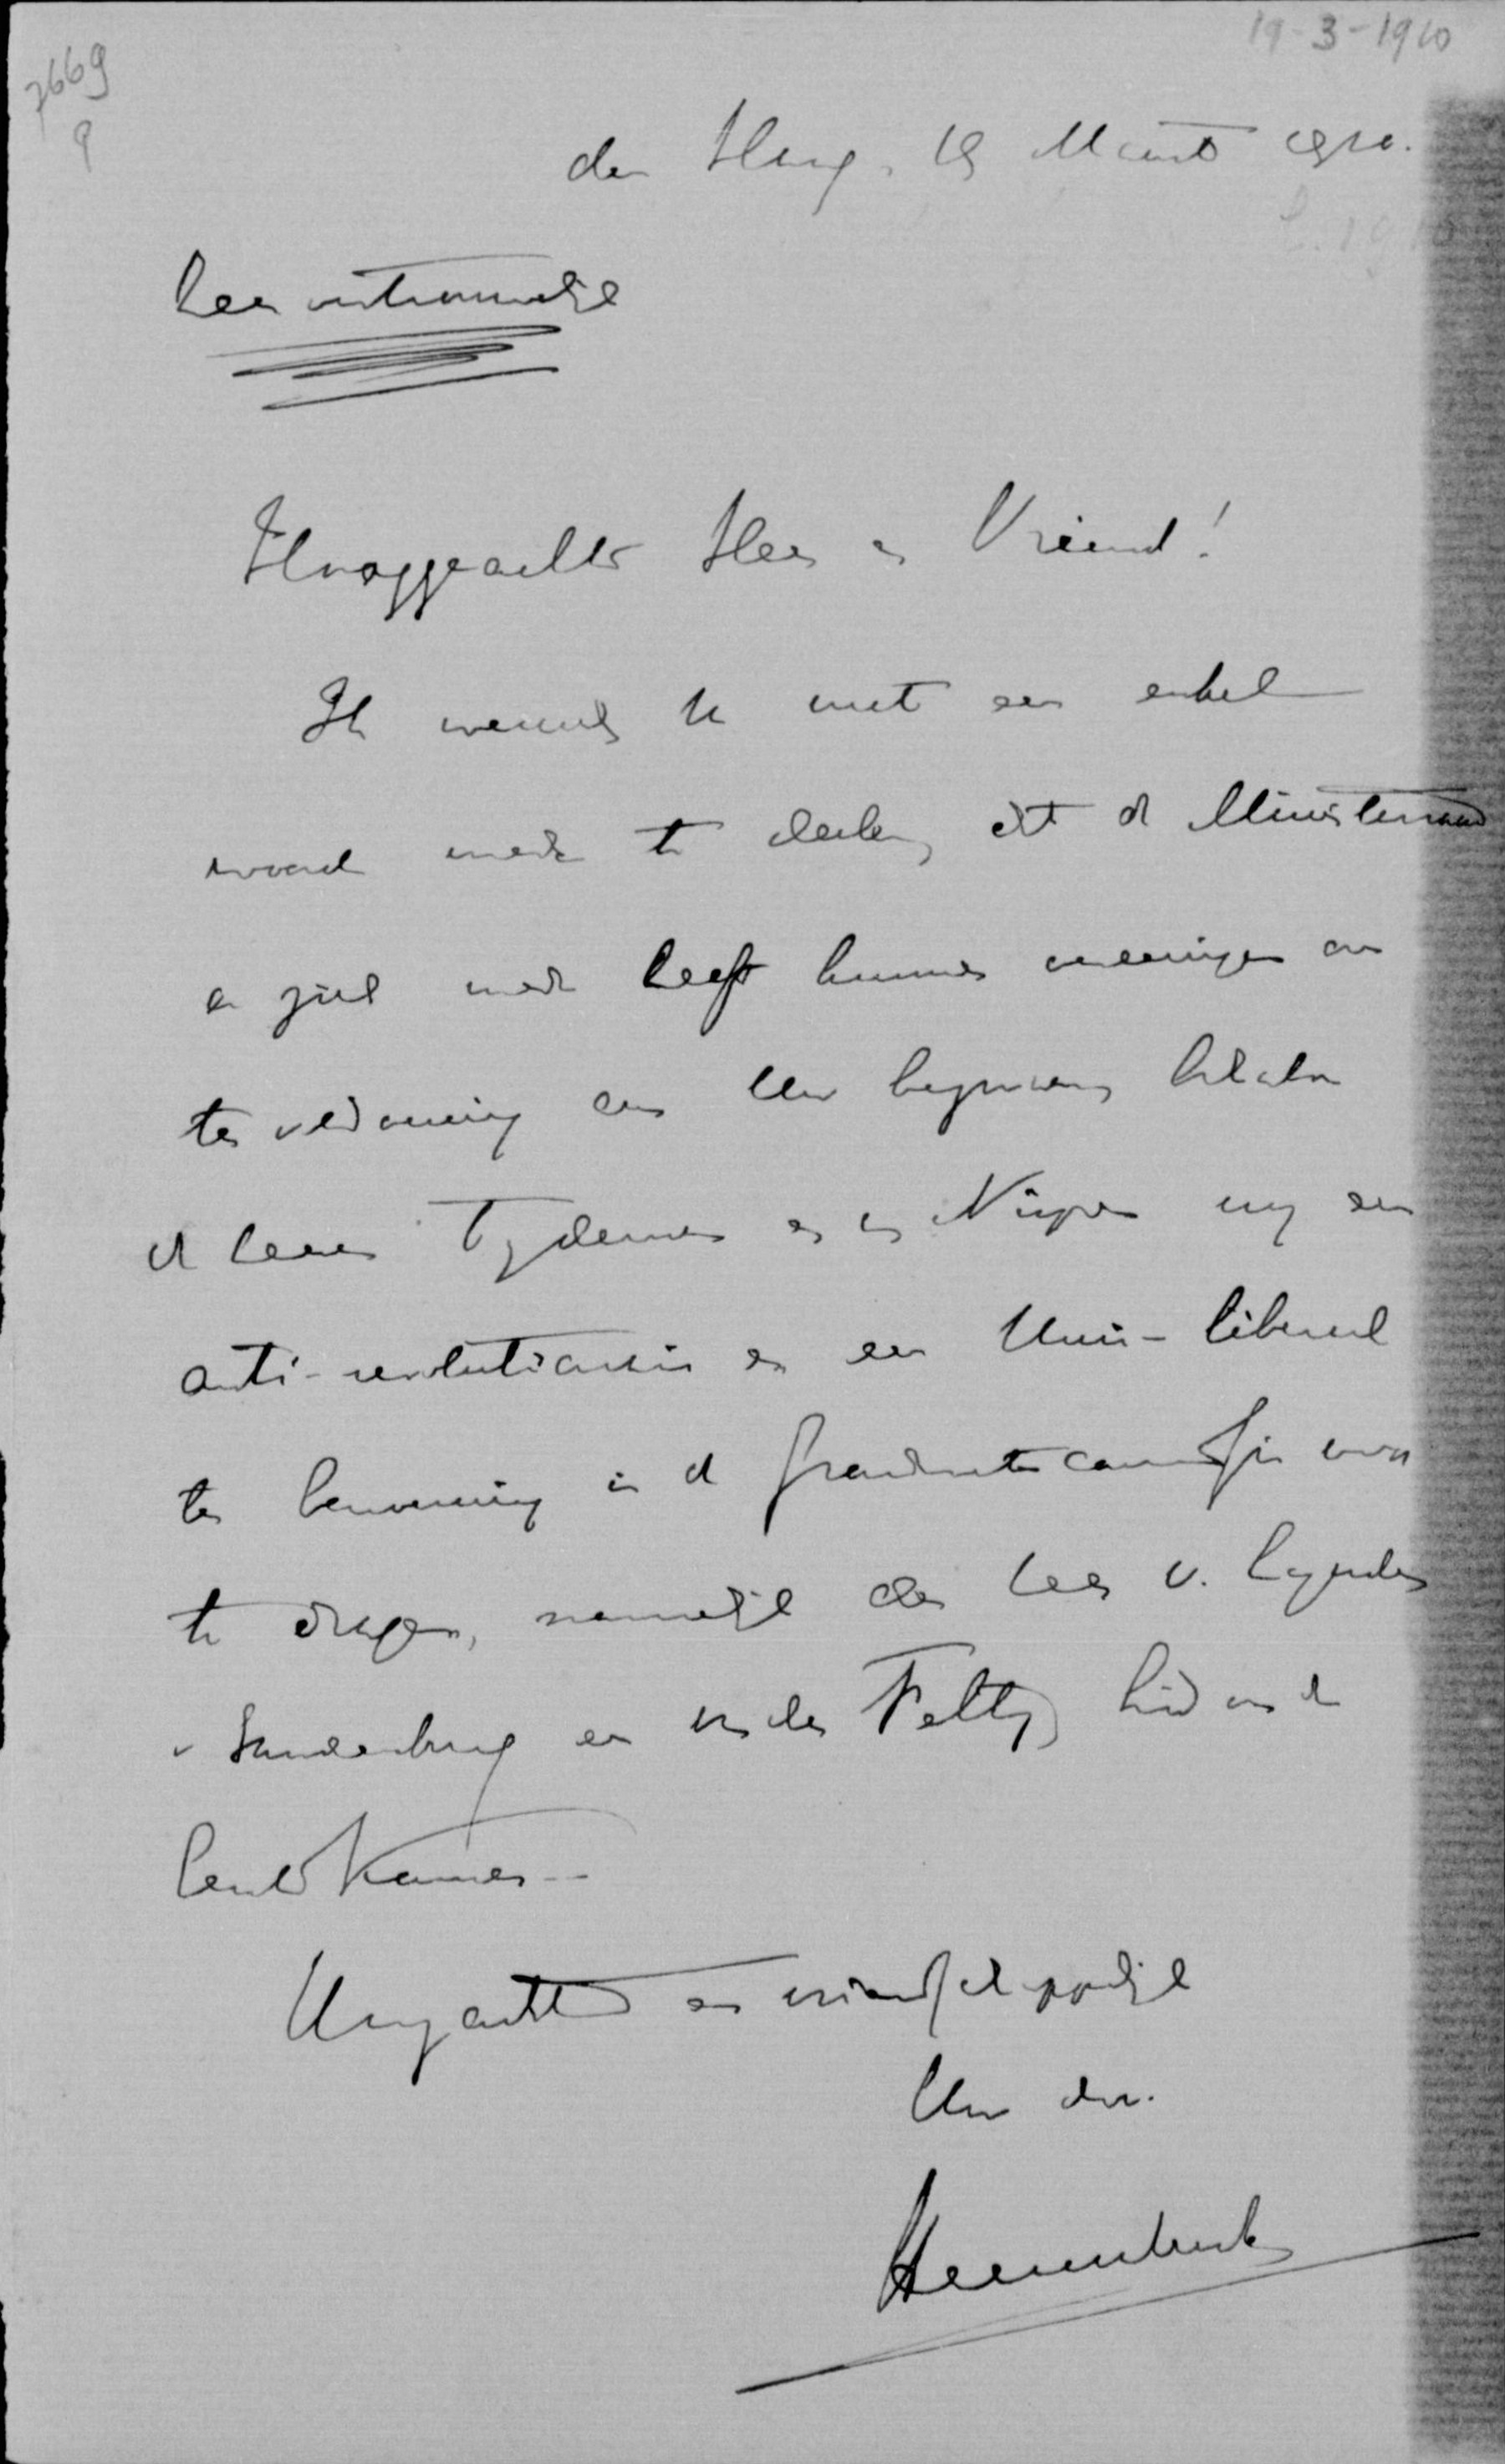 19-3-1910
7669
den Haag, 19 Maart 1910.
Zeer vertrouwelijk
Hooggeachte Heer en Vriend!
Ik wensch U met een enkel
woord mede te deelen, dat de Ministerraad
er zich mede heeft kunnen vereenigen om
ter voldoening aan Uw
de heeren Tydeman en een
anti-revolutionair en een Unie-liberaal
ter benoeming in de Grondwetscommissie voor
te dragen, namelijk den heer v. Lynden
v Sandenburg en van der Feltz, lid van de
Eerste Kamer.
Hoogachtend en vriendschappelijk
Uw dw.
Heemskerk